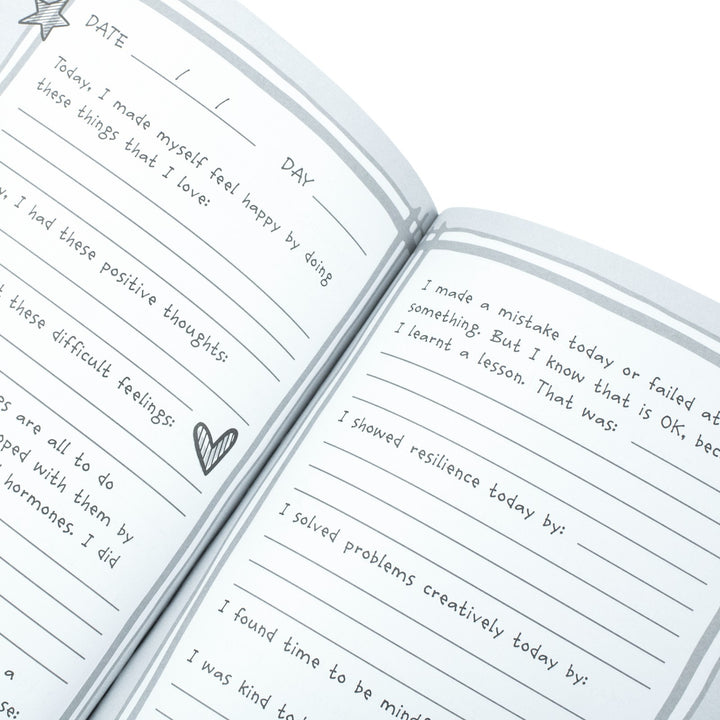 DATE / /
DAY
Today, I made myself feel happy by doing
these things that I love:
I had these positive thoughts:
these difficult feelings:
are all to do
with them by
hormones. I did
a
I made a mistake today or failed at
something. But I know that is OK,
I learnt a lesson. That was:
I showed resilience today by:
I solved problems creatively today by:
I found time to be
I was kind to